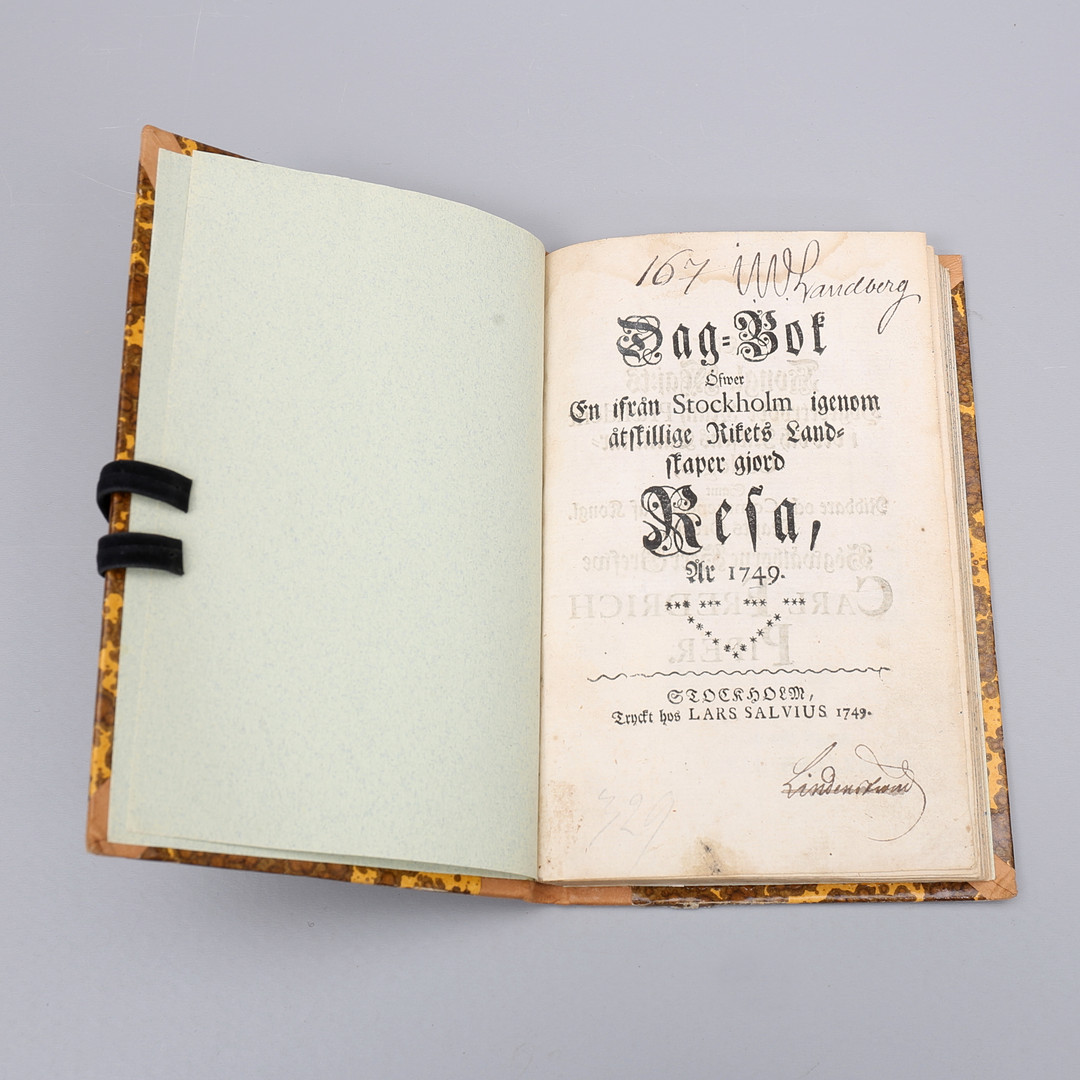 167 W. Landberg
Dag-Bok
Öfwer
En ifrån Stockholm igenom
åtskillige Rikets Land-
skaper gjord
Resa,
År 1749.
*** *** *** ***
STOCKHOLM,
Tryckt hos LARS SALVIUS 1749.
729